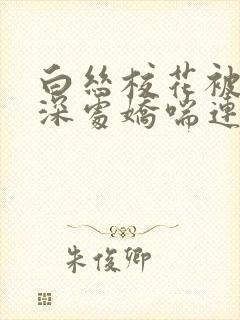 白丝校花被
深处娇喘连
朱俊卿